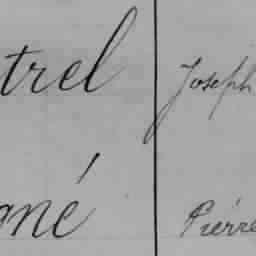 trel Joseph
gné Piérre